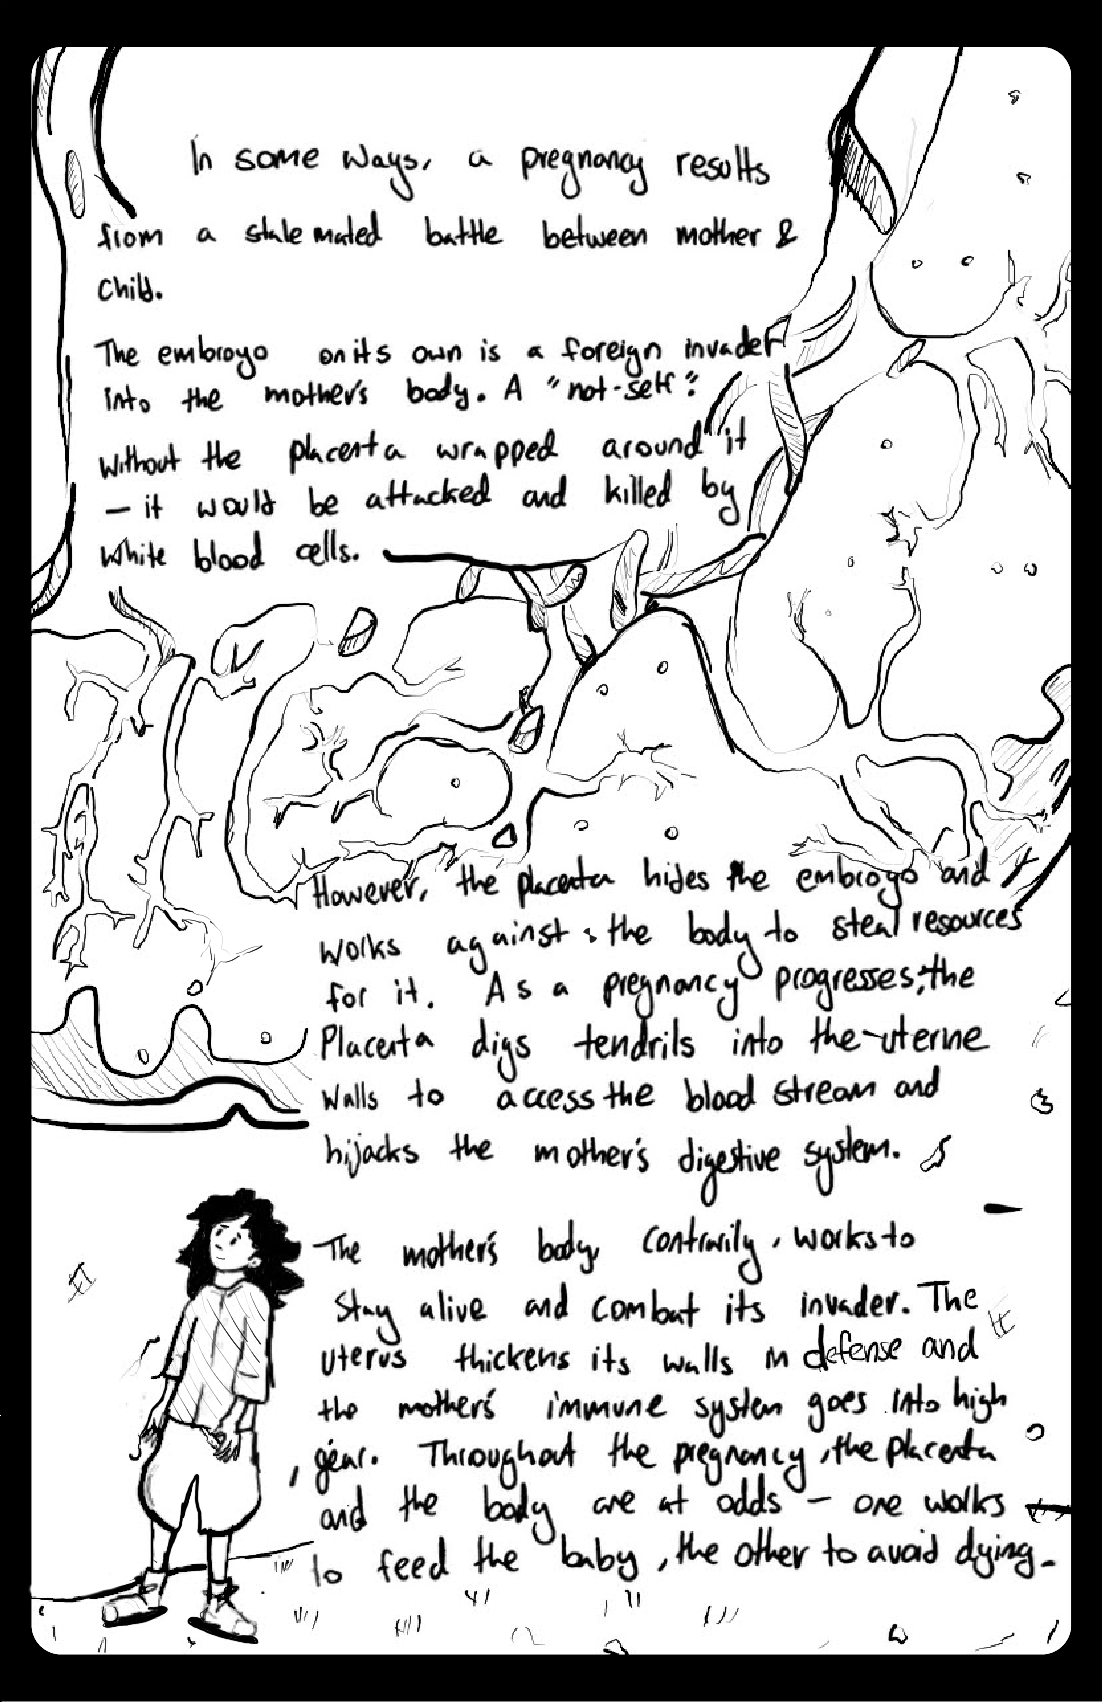 In some ways, a pregnancy results
from a stalemated battle between mother &
child.
The embroyo on its own is a foreign invader
into the mother's body. A "not-self".
Without the placenta wrapped around it
– it would be attacked and killed by
white blood cells.
However, the placenta hides the embroyo and
works against the body to steal resources
for it. As a pregnancy progresses, the
Placenta digs tendrils into the uterine
walls to access the blood stream and
hijacks the mother's digestive system.
The mother's body, contrarily, works to
stay alive and combat its invader. The
uterus thickens its walls in defense and
the mother's immune system goes into high
gear. Throughout the pregnancy, the placenta
and the body are at odds – one works
to feed the baby, the other to avoid dying.